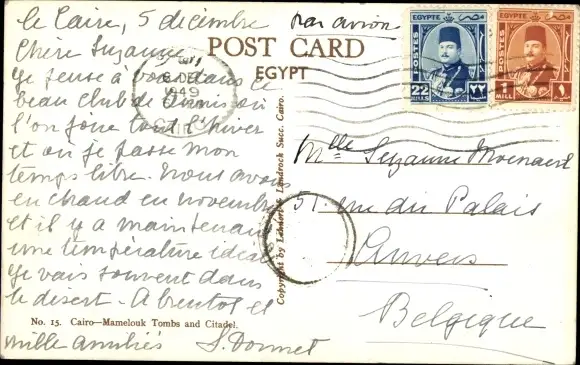 le Caire, 5 décembre
Chère Suzanne,
Je pense à vous dans ce
beau club de tennis où
l'on joue tout l'hiver
et où je passe mon
temps libre. Nous avons
eu chaud en novembre
et il y a maintenant
une température idéale
Je vais souvent dans
le désert. A bientôt et
mille amitiés S. Donnet
par avion
POST CARD
EGYPT
1949
CAIRO
EGYPTE
POSTES
22
MILLS
٢٢
EGYPTE
POSTES
1
MILL
١
Mlle Suzanne Moenaert
51. rue du Palais
Anvers
Belgique
Copyright by Lehnert & Landrock Succ. Cairo.
No. 15. Cairo—Mamelouk Tombs and Citadel.